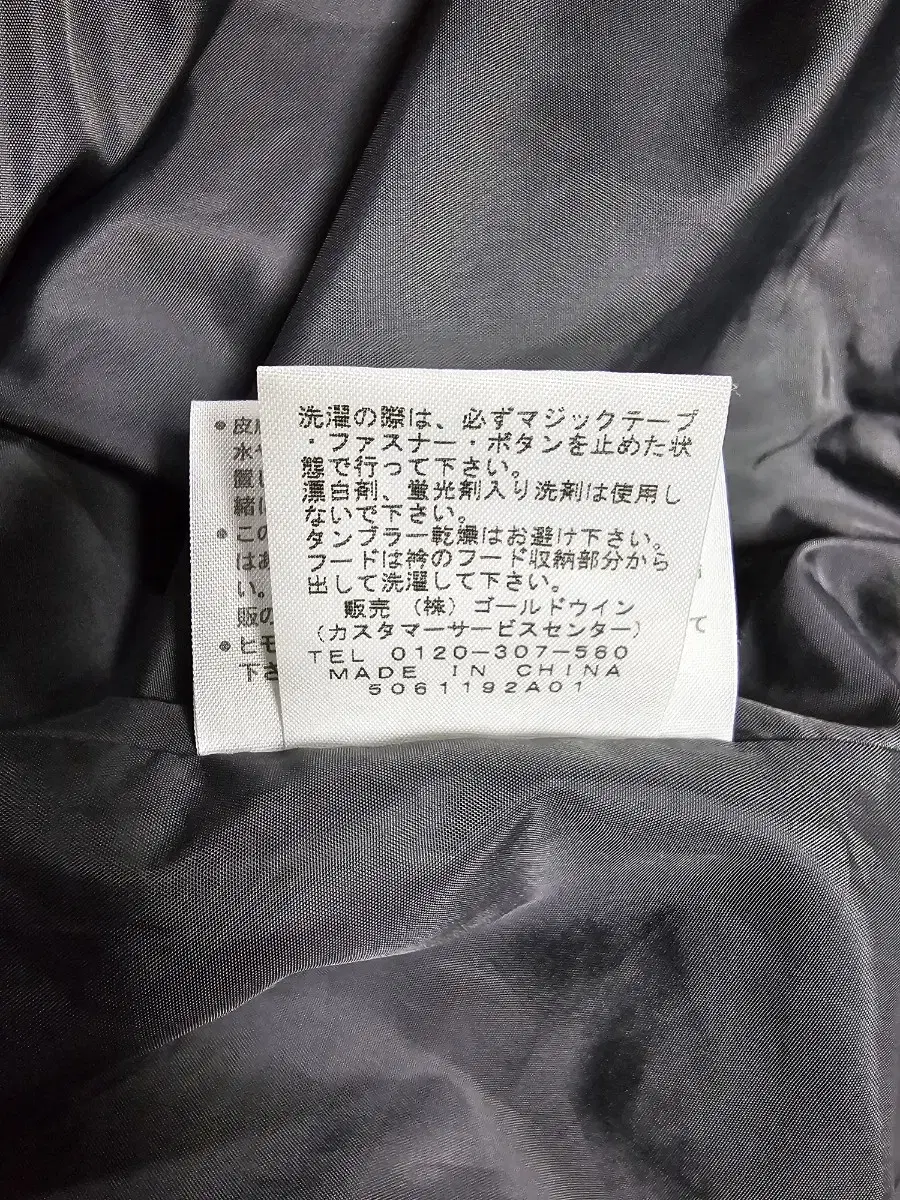 洗濯の際は、必ずマジックテープ
・ファスナー・ボタンを止めた状
態で行って下さい。
漂白剤、蛍光剤入り洗剤は使用し
ないで下さい。
タンブラー乾燥はお避け下さい。
フードは衿のフード収納部分から
出して洗濯して下さい。
販売 (株) ゴールドウイン
(カスタマーサービスセンター)
TEL 0120-307-560
MADE IN CHINA
5061192A01
●皮
水
置
緒に
●この
はあ
い。
販の
●ヒモ
下さ
て